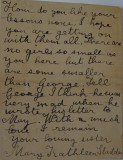 How do you like your
lessons now. I hope
you are getting on
with them all. There are
no girls so small as
you here but there
are some smaller
than George. Tell
George I think he was
very mad when he
wrote letter to
May. With a much
love I remain
Your loving sister
Mary Kathleen